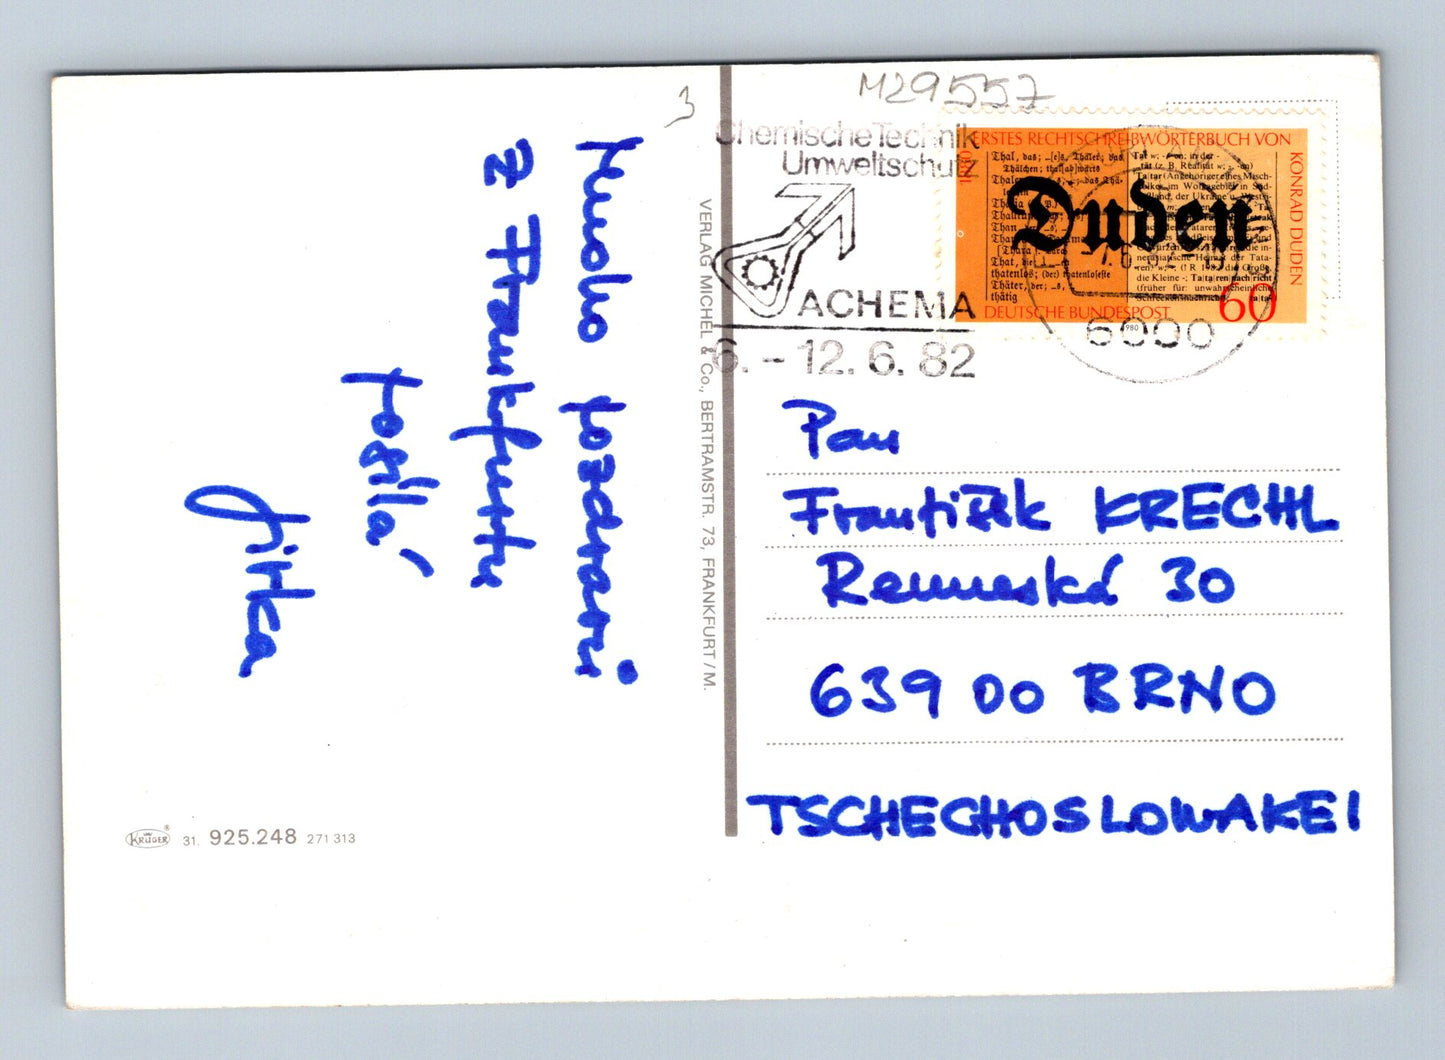 3
M29557
Chemische Technik
Umweltschutz
ACHEMA
6. - 12. 6. 82
6000
ERSTES RECHTSCHREIBWÖRTERBUCH VON
KONRAD DUDEN
Duden
DEUTSCHE BUNDESPOST
60
Mnoho pozdravů
z Frankfurtu
posílá
Jirka
VERLAG MICHEL & Co., BERTRAMSTR. 73, FRANKFURT/M.
Pan
František KRECHL
Renneská 30
639 00 BRNO
TSCHECHOSLOWAKEI
KRÜGER 31. 925.248 271 313